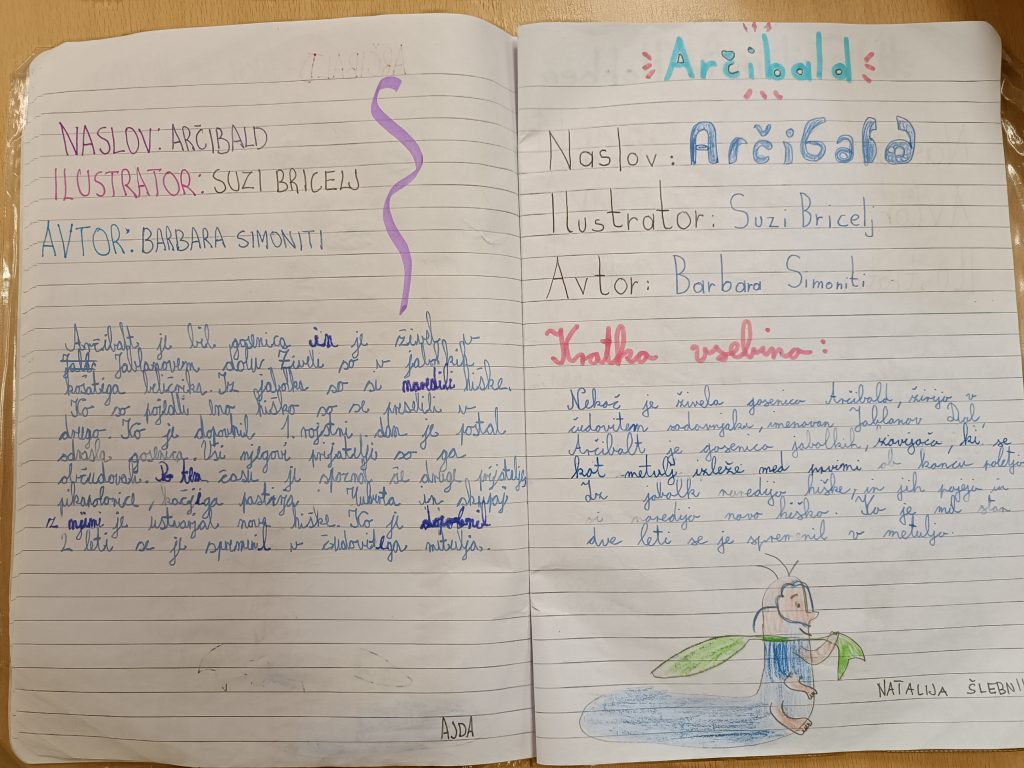 NASLOV: ARČIBALD
ILUSTRATOR: SUZI BRICELJ
AVTOR: BARBARA SIMONITI
Arčibalt je bil gosenica in je živel v
Jablanovem dolu. Živeli so v jabolkih
košatiga Iz jabolka so si naredili hiške.
Ko so pojedli eno hiško so se preselili v
drugo. Ko je dopovnil 1. rojstni dan je postal
odrasla gosenica. Vsi njegovi prijatelji so ga
občudovali. času je spoznal še druge prijatelje
pikapolonice, kačjega pastirja in skupaj
z njimi je ustvarjal nove hiške. Ko je dopolnil
2 leti se je spremenil v čudovitega metulja.
AJDA
Arčibald
Naslov: Arčibald
Ilustrator: Suzi Bricelj
Avtor: Barbara Simoniti
Kratka vsebina:
Nekoč je živela gosenica Arčibald, živijo v
čudovitem sadovnjaki, imenovan Jablanov Dol,
Arčibalt je gosenica jabolkih, zavijača, ki se
kot metulj izleže med prvimi ob koncu poletja
Iz jabolk naredijo hiške, in jih pojejo in
si naredijo novo hiško. Ko je mel star
dve leti se je spremenil v metulja.
NATALIJA ŠLEBNI